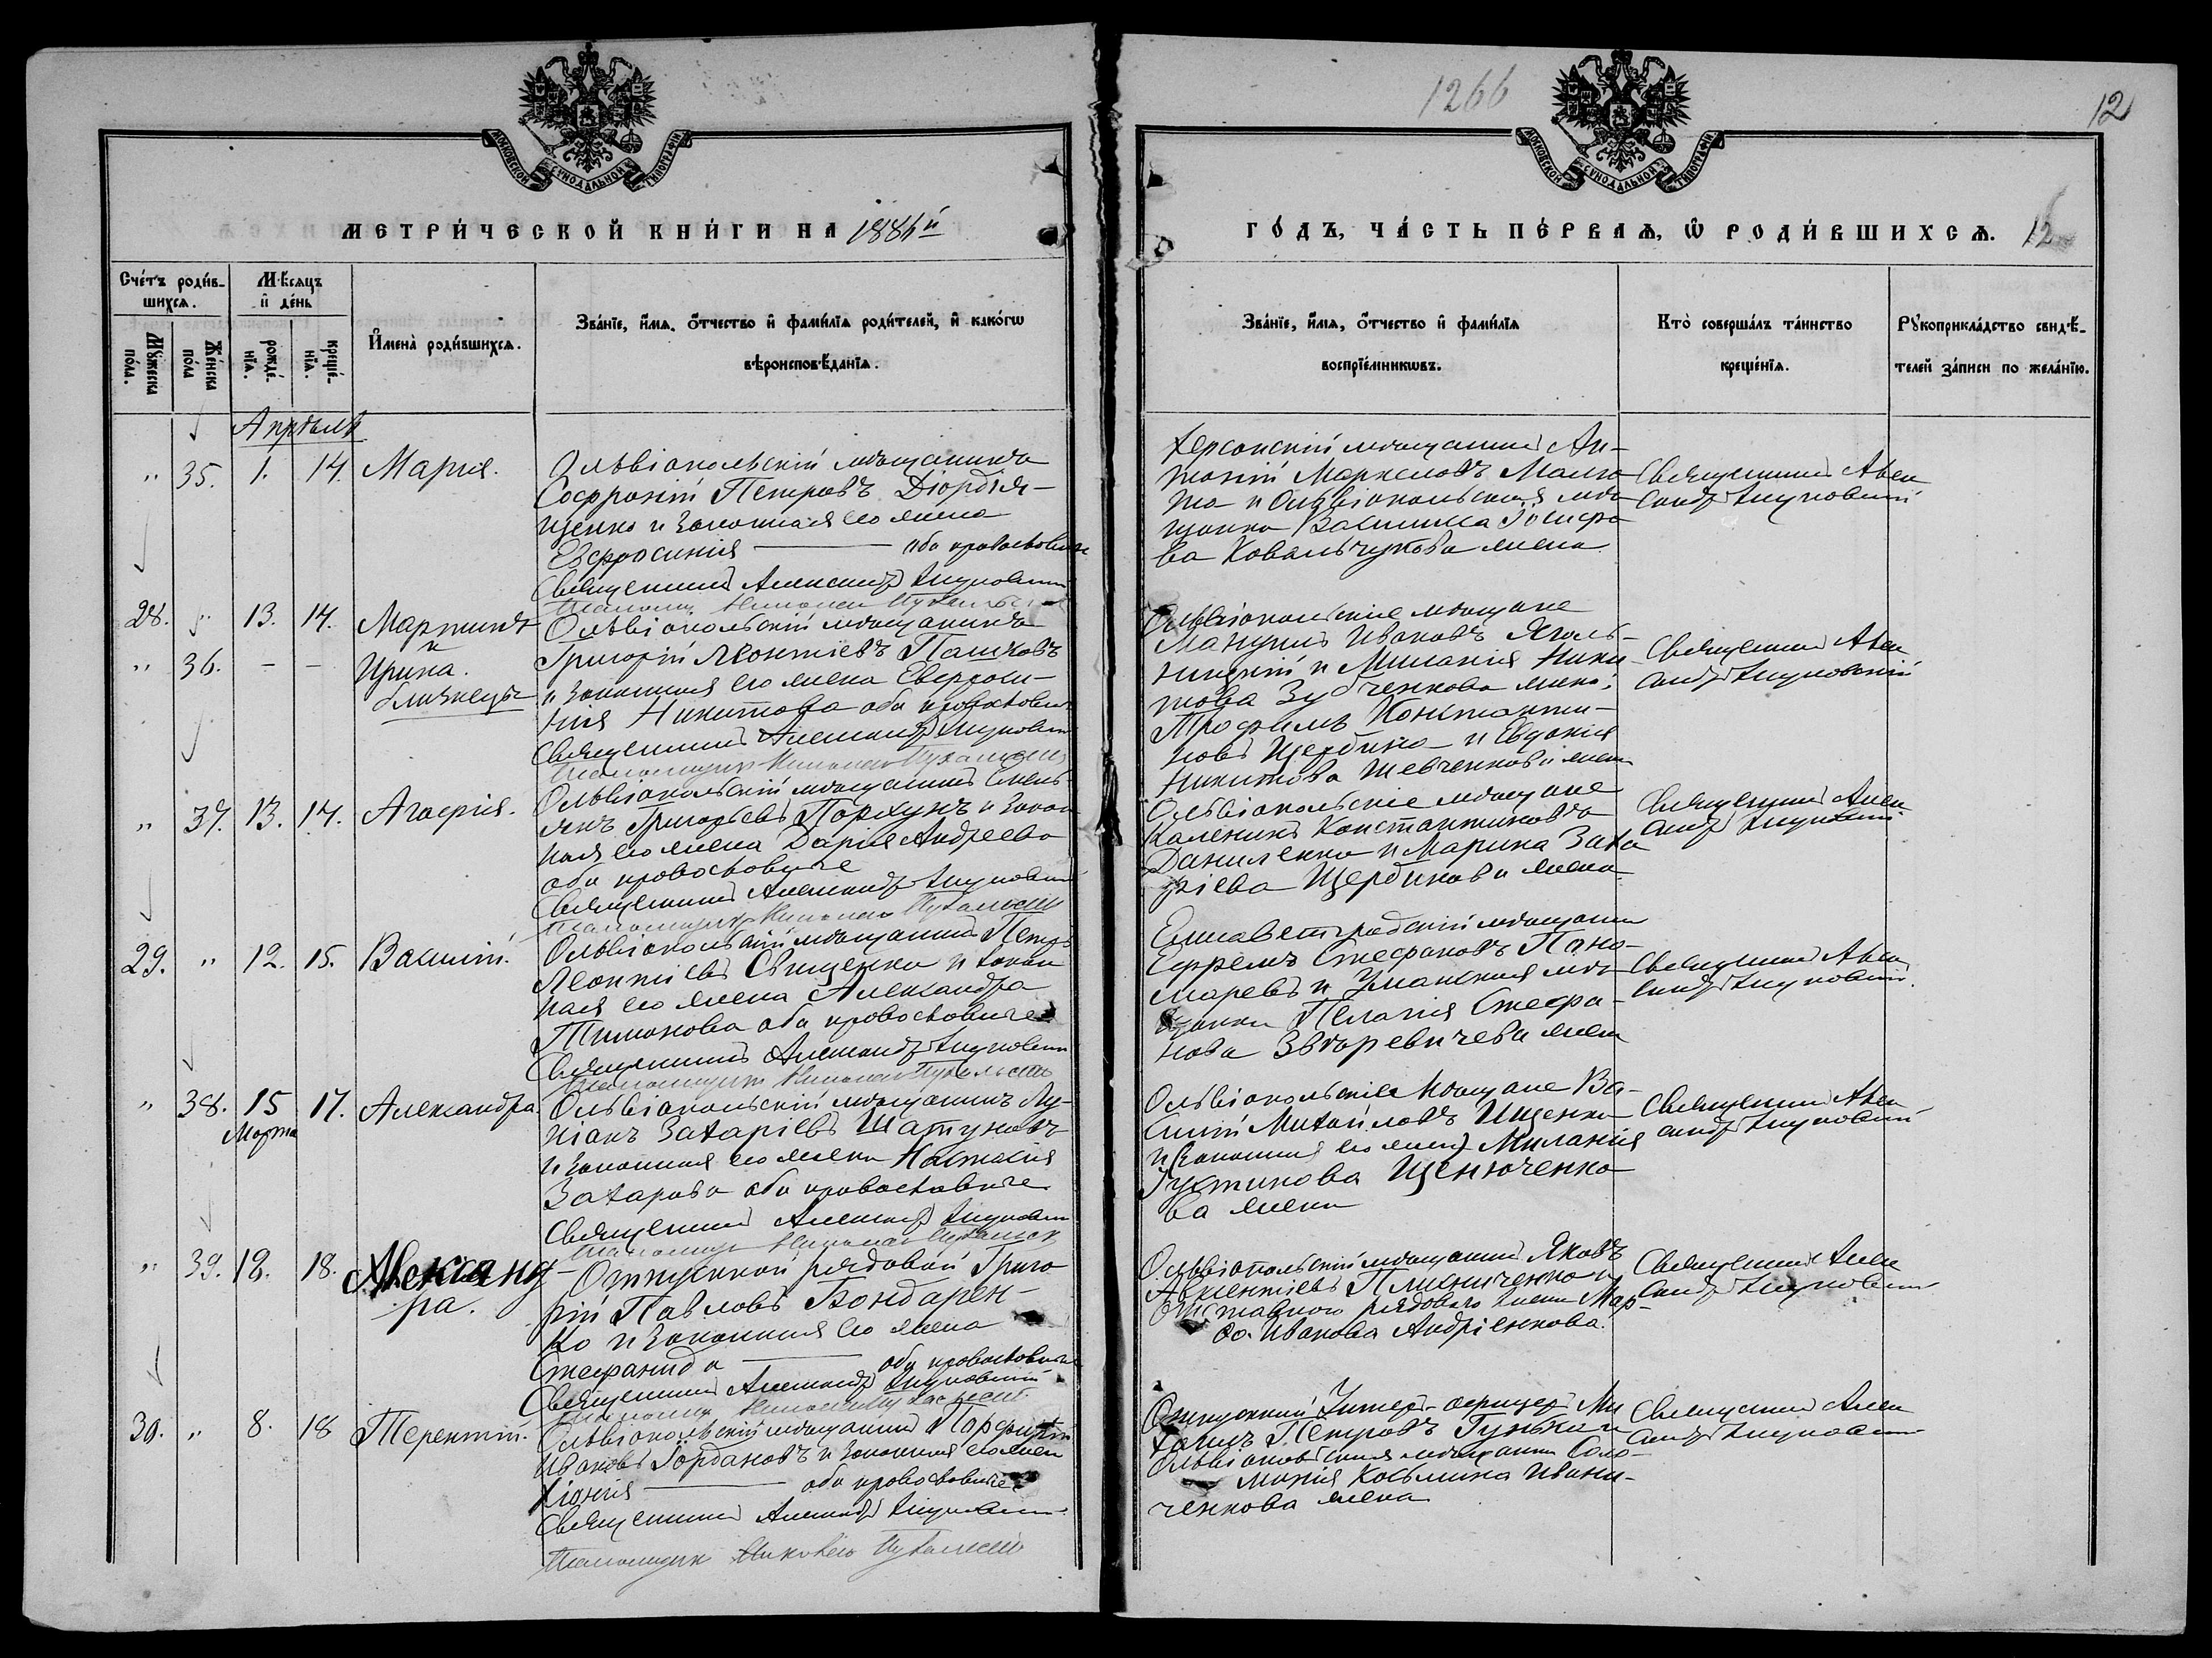 1266
12
МОСКОВСКОЙ СѴНОДАЛЬНОЙ ТИПОГРАФІИ
МОСКОВСКОЙ СѴНОДАЛЬНОЙ ТИПОГРАФІИ
МЕТРИ́ЧЕСКОЙ КНИ́ГИ НА 1886й
ГО́ДЪ, ЧА́СТЬ ПЕ́РВАѦ, Ѡ РОДИ́ВШИХСѦ. 12
Сче́тъ роди́в-
шихсѧ.
Мꙋ́жеска по́ла.
Же́нска по́ла
Мѣ́сѧцъ
и҆ де́нь
рожде́нїѧ.
креще́нїѧ.
И҆мена̀ роди́вшихсѧ.
Зва́нїе, и҆́мѧ, о҆́тчество и҆ фами́лїѧ роди́телей, и҆ како́гѡ
вѣроисповѣ́данїѧ.
Зва́нїе, и҆́мѧ, о҆́тчество и҆ фами́лїѧ
воспрїе́мникѡвъ.
Кто̀ соверша́лъ та́инство
креще́нїѧ.
Рꙋкоприкла́дство свидѣ́-
телей за́писи по жела́нїю.
Апрѣль
" 35. 1. 14. Марія.
Ольвіопольскій мѣщанинъ
Софроній Петровъ Діордія-
щенко и законная его жена
Евфросинія — оба православные
Священникъ Александръ
Херсонскій мѣщанинъ Ан-
тоній Маркеловъ
то и Ольвіопольская мѣ-
щанка Василиса Іосифо
ва Ковальчукова жена
Священникъ Алек
сандръ
28. " 13. 14. Мартинъ
и
" 36. - - Ирина.
близнецы
Ольвіопольскій мѣщанинъ
Григорій Леонтіевъ Пашковъ
и законная его жена Евфроси-
нія Никитова оба православные
Священникъ Александръ
Ольвіопольскіе мѣщане
Мануилъ Ивановъ Яголь-
ницкій и Миланія Ники
това Зубченкова жена;
Трофимъ Константи-
новъ Щербина и Евдокія
Никитова Шевченкова жена
Священникъ Алек
сандръ
" 37. 13. 14. Агафія.
Ольвіопольскій мѣщанинъ Емель-
янъ Григорьевъ Порхунъ и закон
ная его жена Дарія Андреева
оба православные
Священникъ Александръ
Ольвіопольскіе мѣщане
Каленикъ Константиновъ
Даниленко и Марина Заха
ріева Щербинова жена
Священникъ Алек
сандръ
29. " 12. 15. Василій.
Ольвіопольскій мѣщанинъ Петръ
Леонтіевъ Свищенко и закон
ная его жена Александра
Тимонова оба православные
Священникъ Александръ
Елисаветградскій мѣщанинъ
Ефремъ Стефановъ Поно-
маревъ и Уманская мѣ-
щанка Пелагія Стефа-
нова Звѣревичева жена
Священникъ Алек
сандръ
" 38. 15 17. Александра.
Марта
Ольвіопольскій мѣщанинъ Лу-
кіанъ Захаріевъ Шатуновъ
и законная его жена Настасія
Захарова оба православные
Священникъ Александръ
Ольвіопольскіе мѣщане Ва-
силій Михайловъ Ищенко
и (законная его жена) Миланія
Іустинова Щенюченко
ва жена
Священникъ Алек
сандръ
" 39. 12. 18. Александ-
ра.
Отпускной рядовой Григо
рій Павловъ Бондарен-
ко и законная его жена
Стефанида — оба православные
Священникъ Александръ
Ольвіопольскій мѣщанинъ Яковъ
Авксентіевъ и
Отставного рядового жена Мар-
Иванова Андріенкова.
Священникъ Алек
сандръ
30. " 8. 18 Терентій.
Ольвіопольскій мѣщанинъ Порфирій
Ивановъ Іордановъ и законная его жена
Хіонія — оба православные
Священникъ Александръ
Отпускный Унтеръ-офицеръ Ми
хаилъ Петровъ и
Ольвіопольская мѣщанка Соло-
монія Косьмина Ивани-
ченкова жена
Священникъ Алек
сандръ